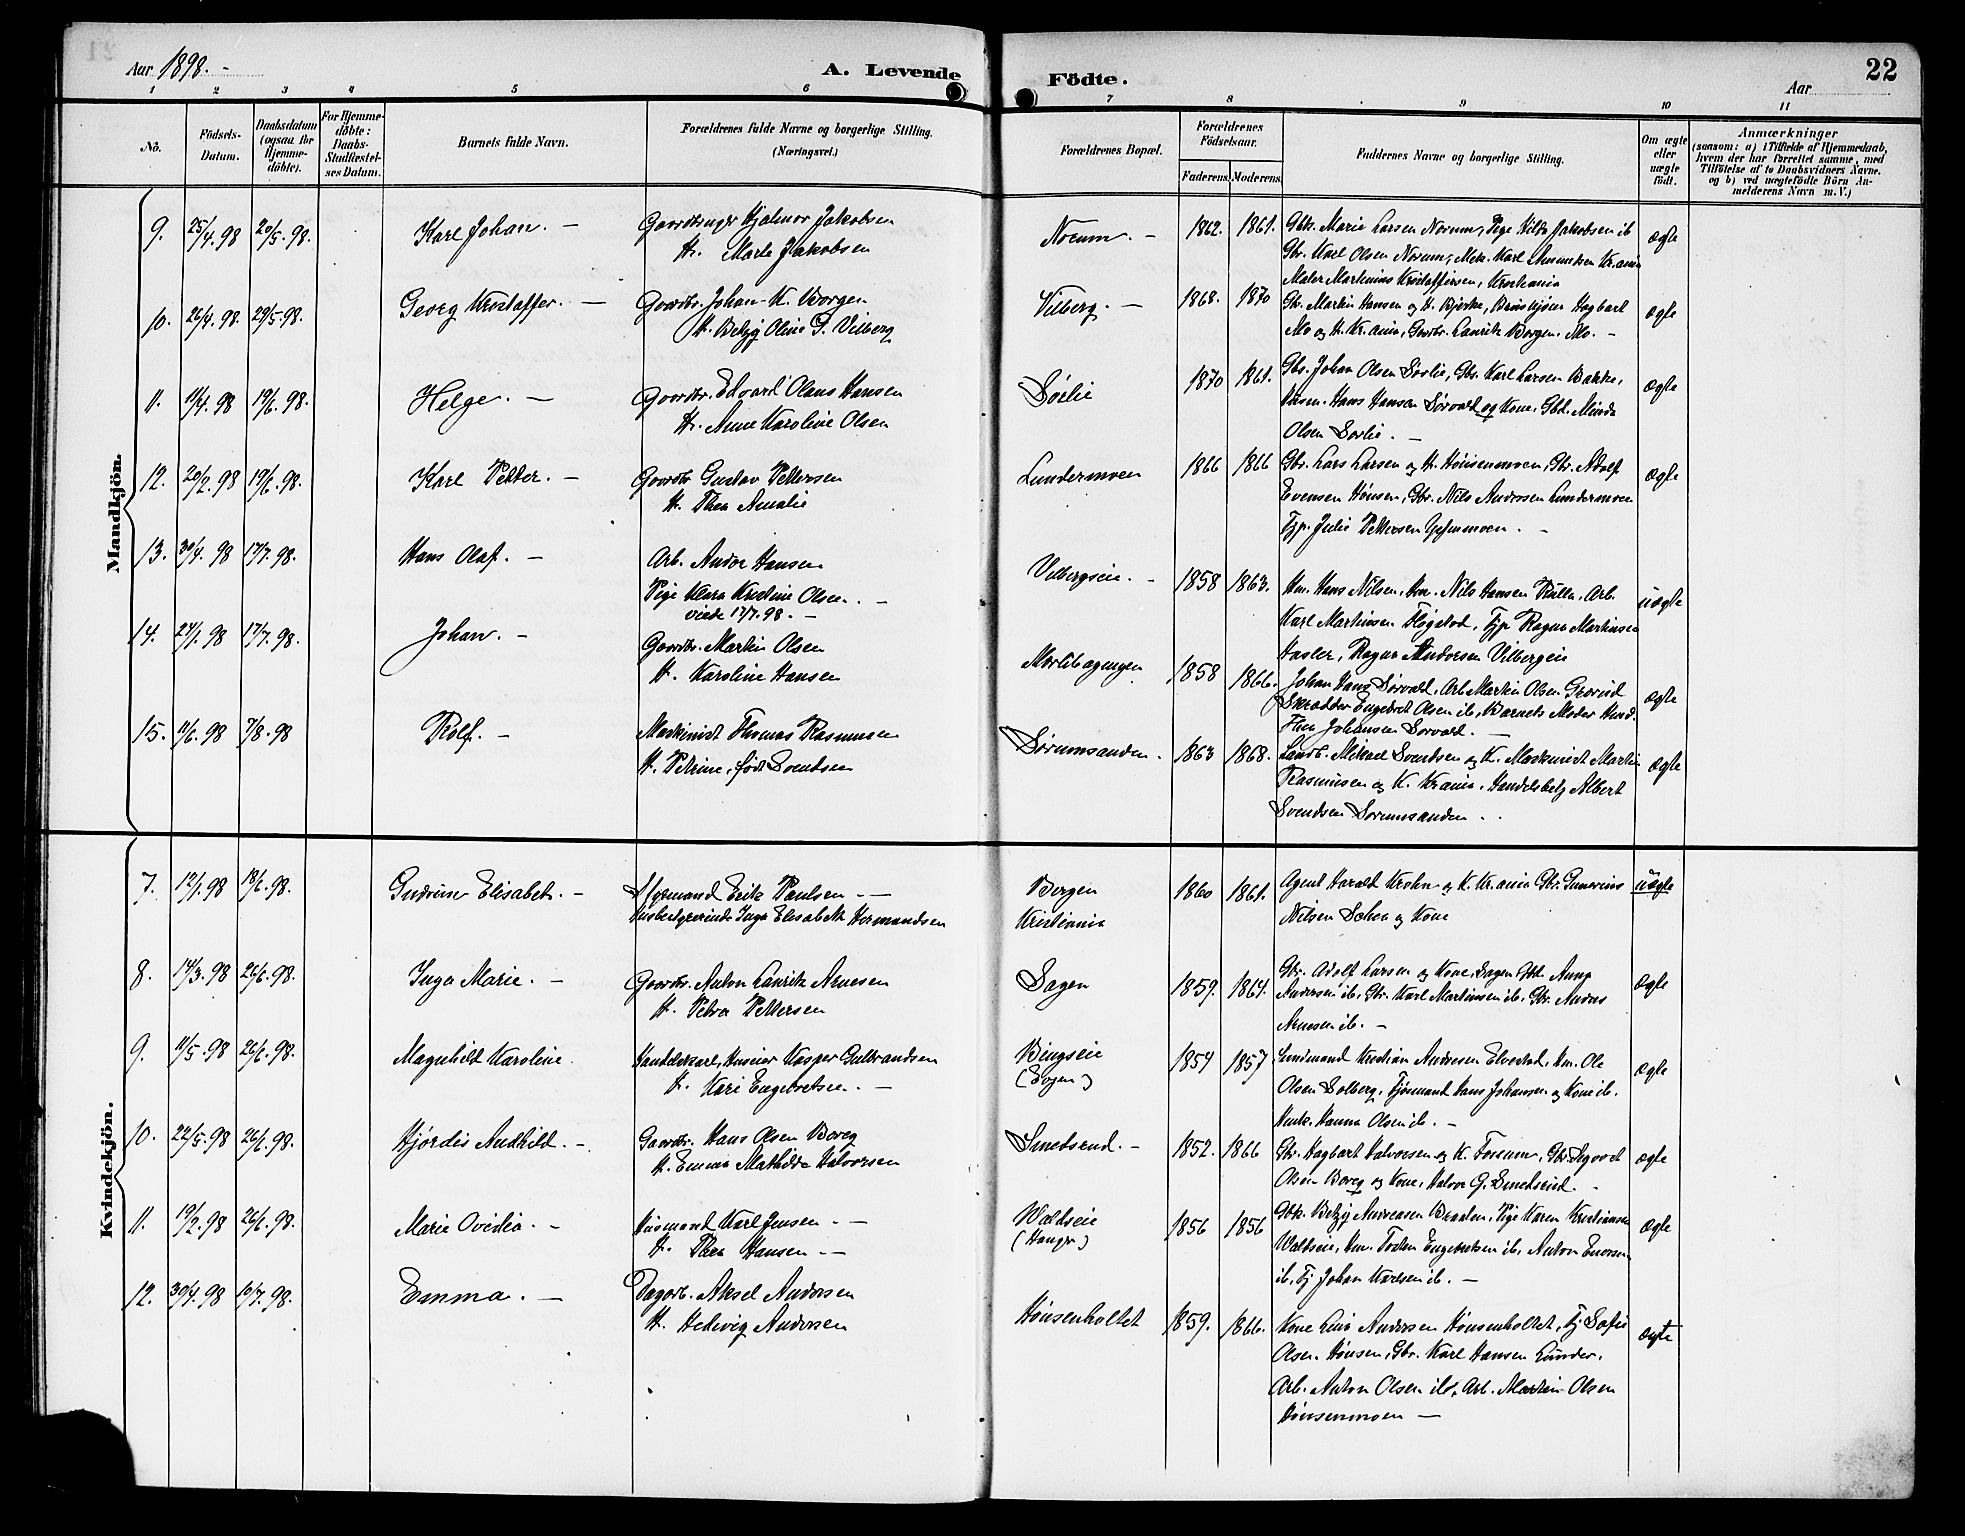 Aar 1898. -
A. Levende
Födte.
Aar
22
1 2 3 4 5 6 7 8 9 10 11
No.
Födsels-Datum.
Daabsdatum (ogsaa for Hjemme-döbte).
For Hjemme-döbte: Daabs-Stadfæstel-ses Datum.
Barnets fulde Navn.
Forældrenes fulde Navne og borgerlige Stilling.
(Næringsvei.)
Forældrenes Bopæl.
Forældrenes Födselsaar.
Faderens. Moderens.
Faddernes Navne og borgerlige Stilling.
Om ægte eller uægte födt.
Anmærkninger
(saasom: a) i Tilfælde af Hjemmedaab,
hvem der har forrettet samme, med
Tilföielse af to Daabsvidners Navne.
og b) ved uægtefödte Börn An-
melderens Navn m. V.)
Mandkjön.
9. 25/4.98 20/5.98. Karl Johan. - Gaardbruger Hjalmar Jakobsen
H. Marte Jakobsen
Norum. - 1862. 1861. Gbk. Marie Larsen Norum, Pige Hilda Jakobsen ib
Gbr. Karl Olsen Norum, Mek. Karl Amundsen Kr.ania
Maler Martinius Kristoffersen, Kristiania
ægte
10. 26/4.98 29/5.98. Georg Kristoffer. - Gaardbr. Johan K. Borgen
H. Betzy Oline G. Vilberg
Vilberg. - 1868. 1870 Gbr. Martin Hansen og H. Bjerke, Hagbart
Mo og H. Kr.ania, Gaardbr. Laurits Borgen, Mo. -
ægte
11. 11/4.98 19/6.98. Helge. - Gaardbr. Edvard Olaus Hansen
H. Anne Karoline Olsen
Sörlie 1870 1861. Gbr. Johan Olsen Sörlie, Gbr. Karl Larsen Bakke,
Hans Hansen Sörvald og Kone, Gbd. Minda
Olsen Sorlie. -
ægte
12. 20/2.98 19/6.98. Karl Petter. - Gaardbr Gustav Pettersen
H. Thea Amalie
Lundermoen 1866 1866 Gbr. Lars Larsen og H. Hönsenmoen, Gbr. Adolf
Evensen Hönsen, Gbr. Nils Andersen Lundermoen
Tjp. Julie Pettersen -
ægte
13. 30/4.98 17/7.98. Hans Olaf. - Arb. Andor Hansen
Pige Klara Kristine Olsen. -
viede 17/7.98. -
Vilbergseie. - 1858 1863. Hm. Hans Nilsen, Hm. Nils Hansen Arb.
Karl Martinsen Flögstad, Tjp Ragna Martinsen
Hasler, Ragna Andersen Vilbergeie
uægte
14. 27/1.98 17/7.98. Johan. - Gaardbr. Martin Olsen
H. Karoline Hansen
1858 1866. Johan Hans Sörvald, Arb Martin Olsen
Skrædder Engebret Olsen ib, Barnets Moder
Thea Johansen Sorvald. -
ægte
15. 11/6.98 7/8.98 Rolf. - Maskinist Thomas Rasmussen
H. Petrine, født Svendsen
Sörumsanden. 1863 1868. Landh. Mikael Svendsen og K. Maskinist Martin
Rasmussen og K. Kr.ania, Handelsbetj Albert
Svendsen Sorumsanden. .
ægte
Kvindekjön.
7. 12/1.98 18/6.98. Gudrun Elisabet. - Styrmand Erik Paulsen - -
Husbestyrerinde Inga Elisabeth Hermandsen
Bergen
Kristiania
1860 1861. Agent Harald Krohn og K. Kr.ania Gbr. Gunerius
Nilsen og Kone
uægte
8. 14/3.98 26/6.98. Inga Marie. - Gaardbr. Anton Laurits Arnesen
H. Petra Pettersen
Sagen 1859. 1864. Gbr. Adolf Larsen og Kone, Sagen Gbd. Anna
Andersen ib, Gbr. Karl Martinsen ib, Gbr. Andras
Arnesen ib. -
ægte
9. 11/5.98 26/6.98. Magnhild Karoline. Handelskarl, Huseier Kasper Gulbrandsen
H. Kari Engebretsen. -
Bingseie
1854 1857 Lensmand Kristian Andersen Elvestad, Hm. Ole
Olsen Solberg, Fjösmand Hans Johansen og Kone ib.
Hanna Olsen ib. -
ægte
10. 22/5.98 26/6.98. Hjördis Andhild. - Gaardbr. Hans Olsen Boreg
H. Emma Mathilde Halvorsen
Smedsrud. - 1852. 1866 Gbr. Hagbart Halvorsen og K. Forsum, Gbr. Sigvart
Olsen Boreg og Kone, Halvor G. Smedsrud. -
ægte
11. 19/2.98 26/6.98. Marie Ovidia. - Husmand Karl Jensen. -
H. Thea Hansen. -
Waldseie
1856 1856 Gbk. Betzy Andreasen Braaten, Pige Karen Kristiansen
Waldseie, Hm. Engebretsen ib, Anton
ib, Tj Johan Karlsen ib. -
ægte
12. 30/4.98 10/7.98. Emma. - Dagarb. Aksel Andersen
H. Hedevig Andersen
Hönsenholtet 1859. 1866. Kone Lina Andersen Hönsenholtet, Tj Sofie
Olsen Hönsen, Gbr. Karl Hansen Lunder,
Arb. Anton Olsen ib, Arb. Martin Olsen
Hönsenmoen -
ægte